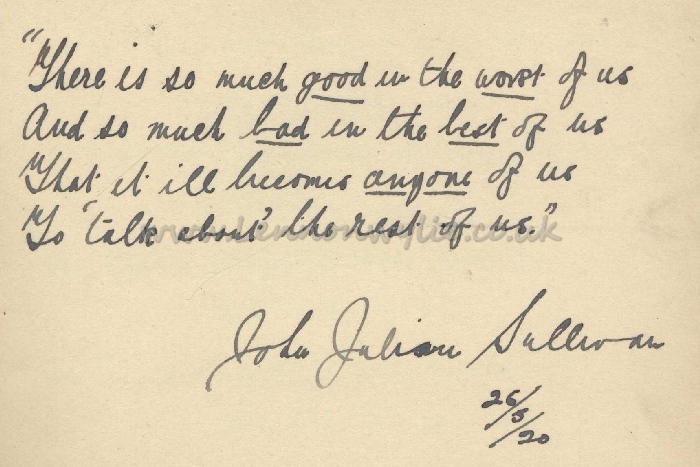 "There is so much good in the worst of us
And so much bad in the best of us
That it ill becomes anyone of us
To 'talk about' the rest of us."
John Julian Sullivan
26/5/20